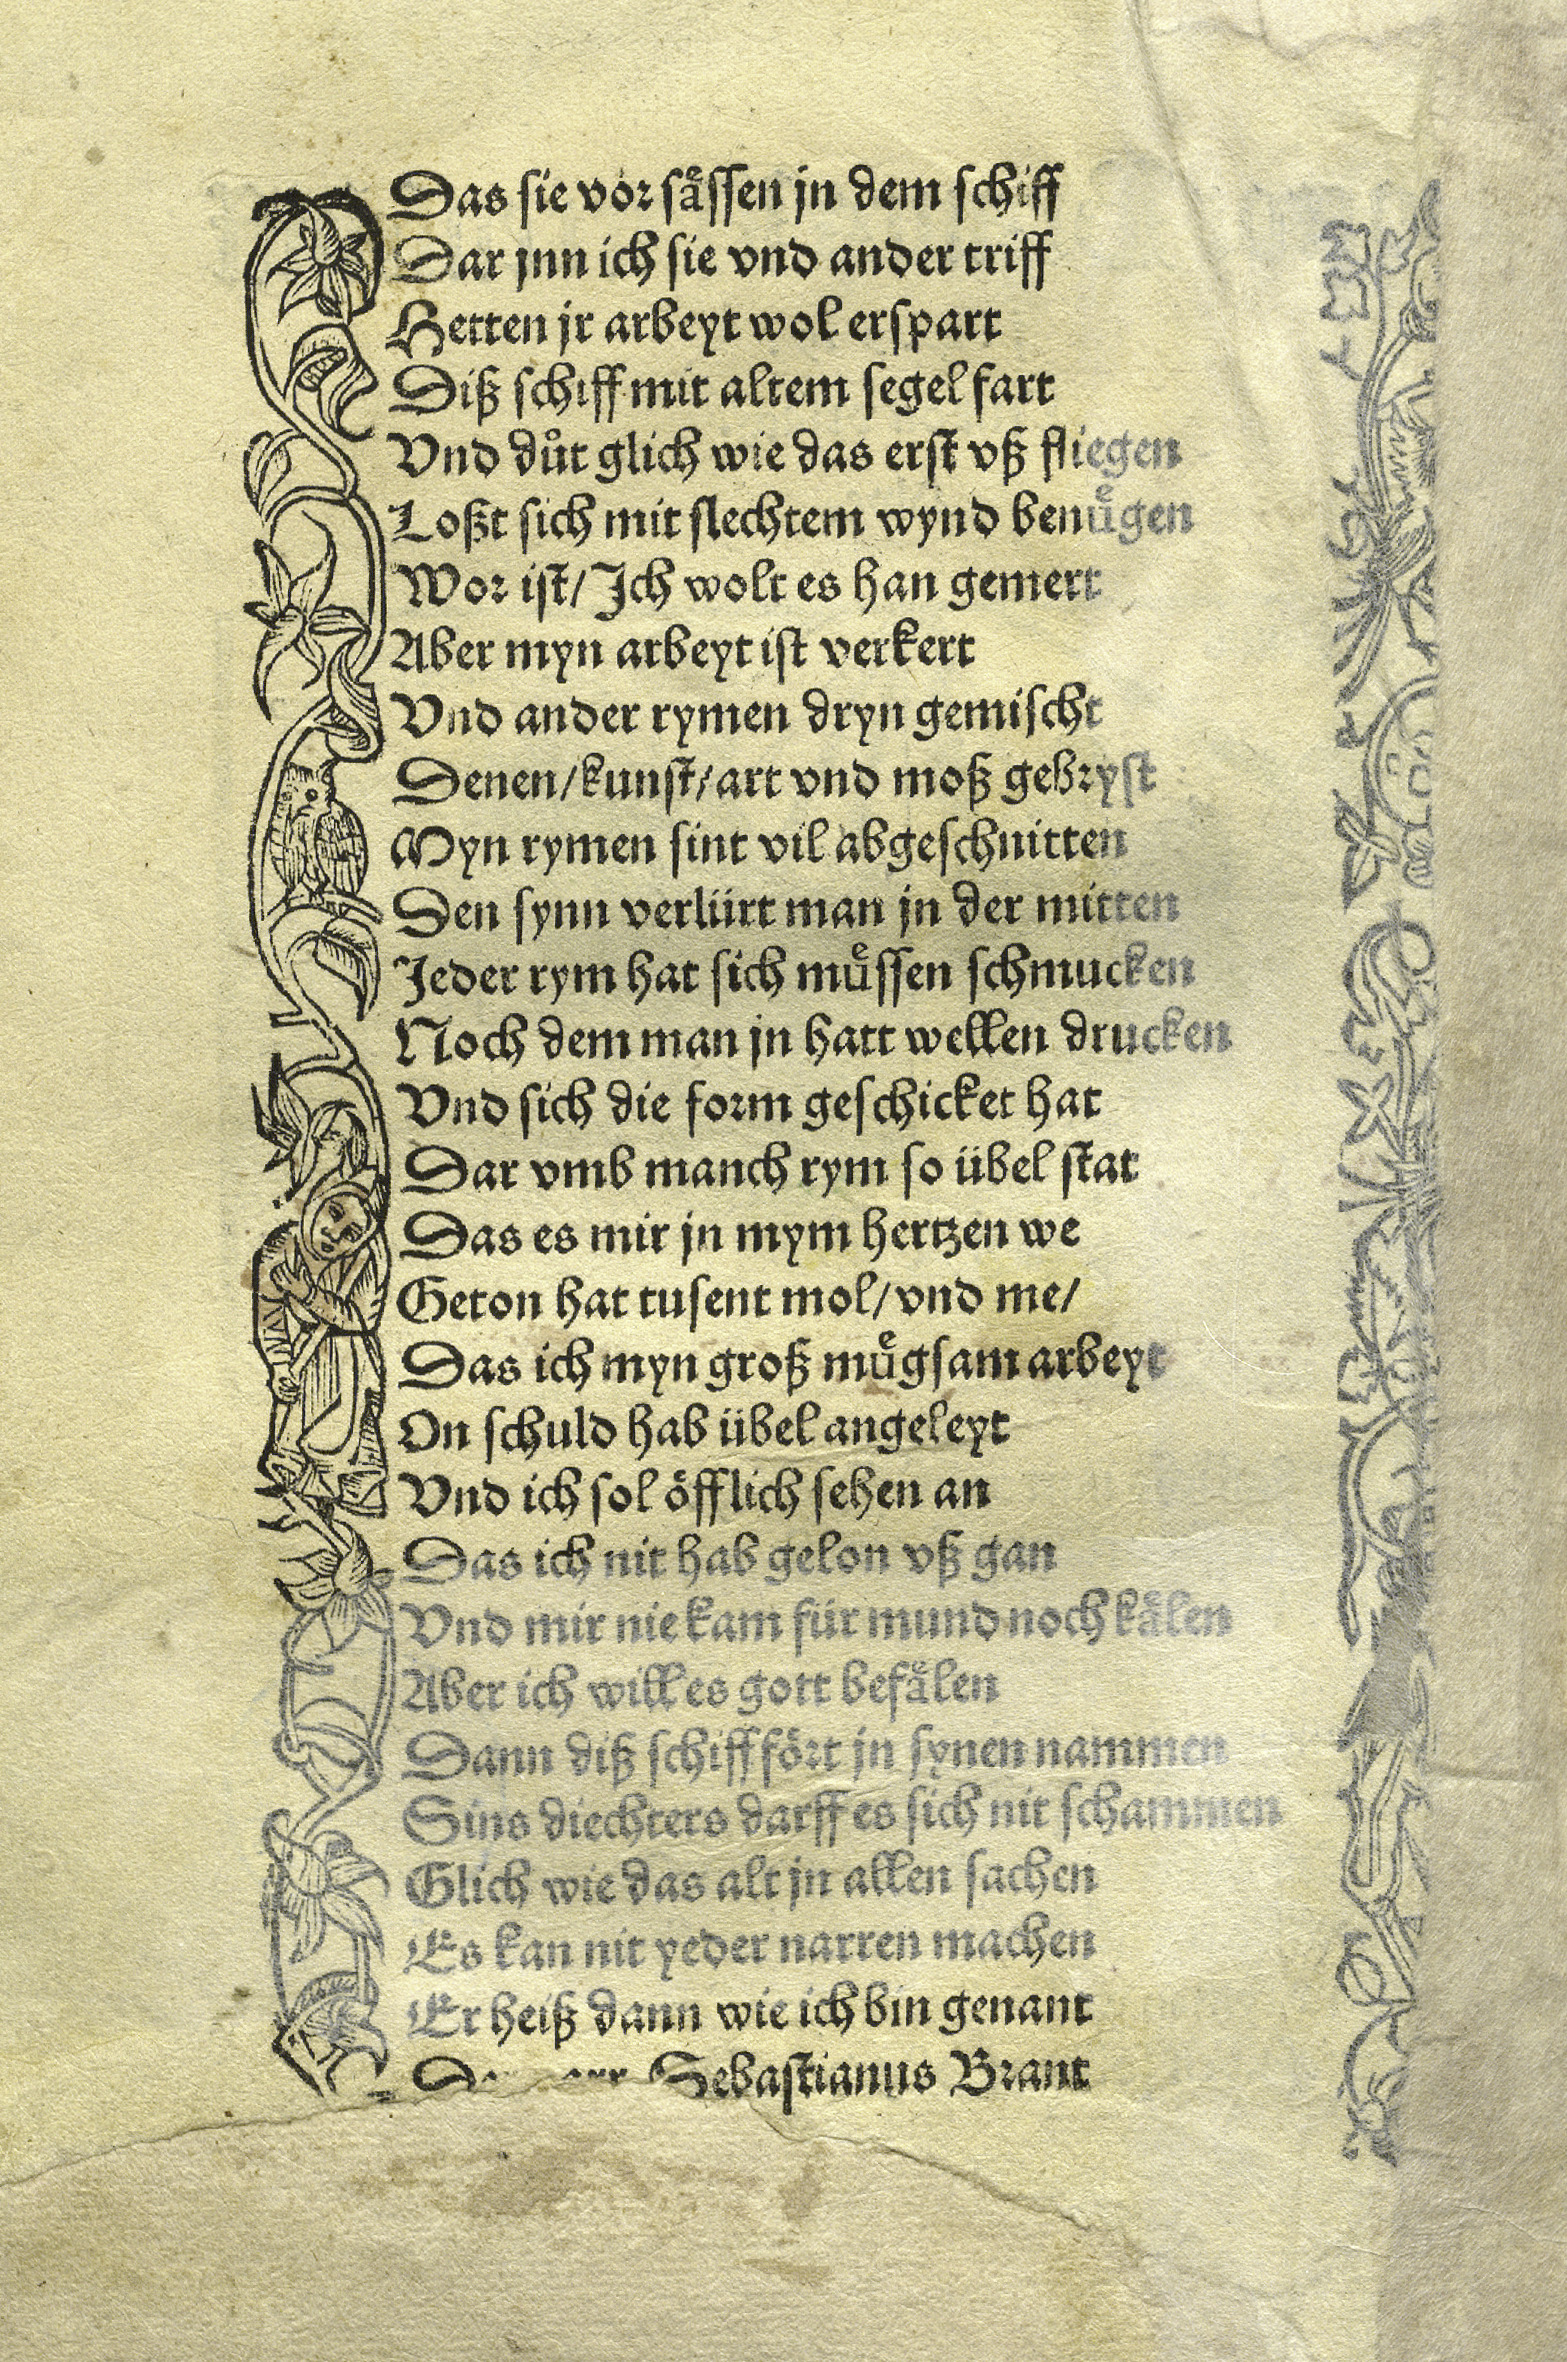 Das sie vor saͤssen jn dem schiff
Dar jnn ich sie vnd ander triff
Hetten jr arbeyt wol erspart
Diß schiff mit altem segel fart
Vnd duͦt glich wie das erst vß fliegen
Loßt sich mit slechtem wynd benuͤgen
Wor ist/ Jch wolt es han gemert
Aber myn arbeyt ist verkert
Vnd ander rymen dryn gemischt
Denen/ kunst/ art vnd moß gebryst
Myn rymen sint vil abgeschnitten
Den synn verlürt man jn der mitten
Jeder rym hat sich muͤssen schmucken
Noch dem man jn hatt wellen drucken
Vnd sich die form geschicket hat
Dar vmb manch rym so übel stat
Das es mir jn mym hertzen we
Geton hat tusent mol/ vnd me/
Das ich myn groß muͤgsam arbeyt
On schuld hab übel angeleyt
Vnd ich sol oͤfflich sehen an
Das ich nit hab gelon vß gan
Vnd mir nie kam für mund noch kaͤlen
Aber ich will es gott befaͤlen
Dann diß schiff foͤrt jn synen nammen
Sins diechters darff es sich nit schammen
Glich wie das alt jn allen sachen
Es kan nit yeder narren machen
Er heiß dann wie ich bin genant
Sebastianus Brant